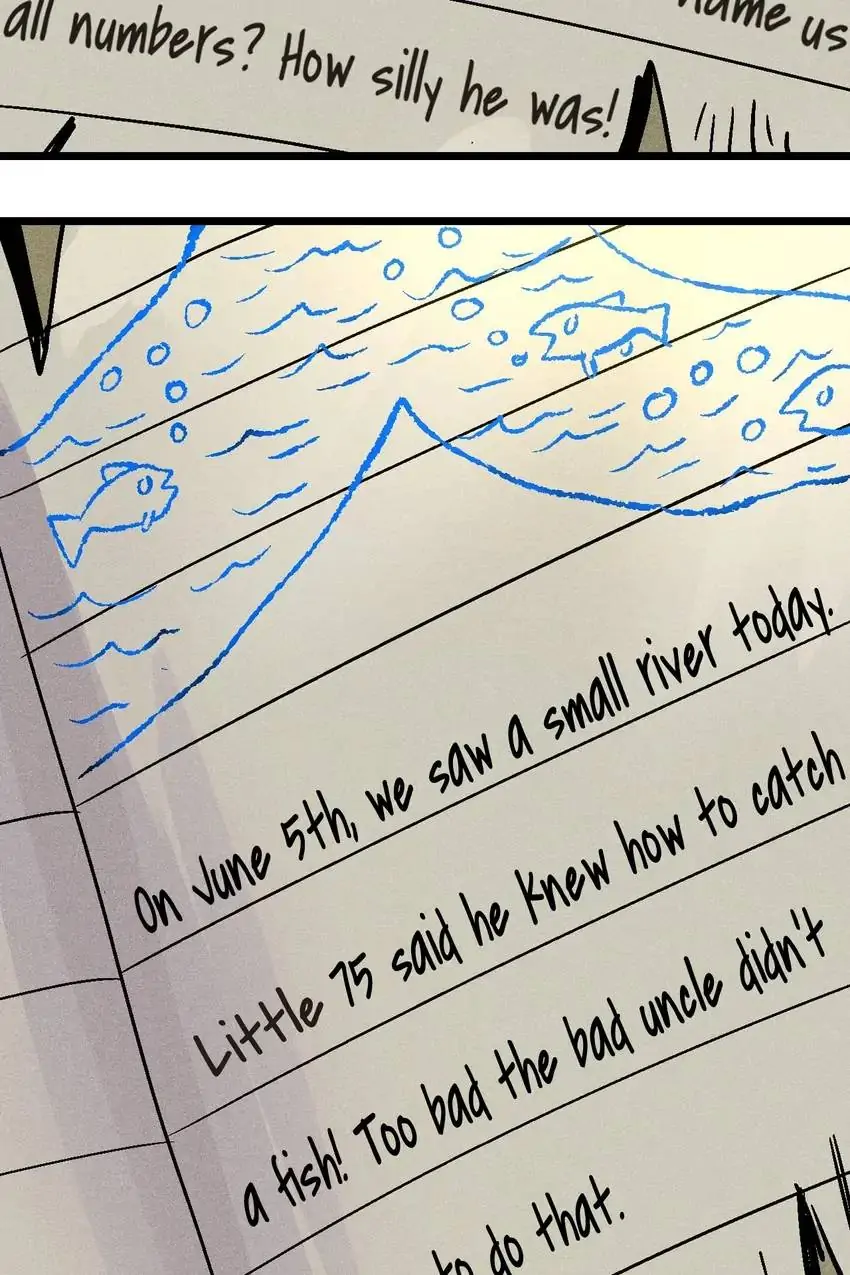 name us
all numbers? How silly he was!
On June 5th, we saw a small river today.
Little 75 said he knew how to catch
a fish! Too bad the bad uncle didn't
to do that.